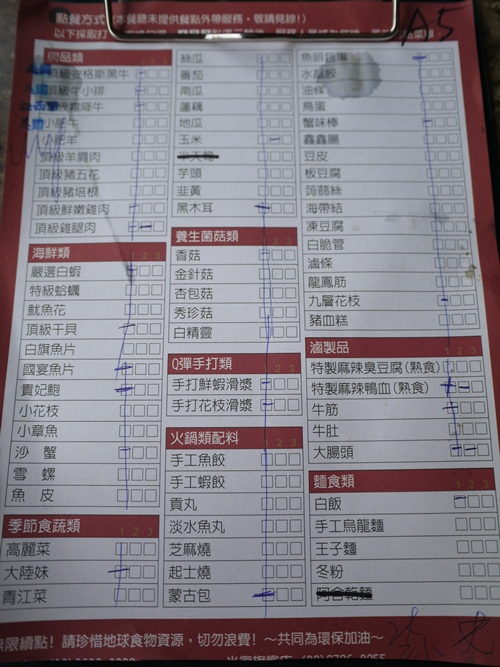 點餐方式(本餐廳未提供餐點外帶服務，敬請見諒!)
以下採取打
A5
肉品類
頂級安格斯黑牛
頂級牛小排
級霜降牛
小肥牛
小肥羊
頂級羊肩肉
頂級豬五花
頂級豬培根
頂級鮮嫩雞肉
頂級雞腿肉
海鮮類
1 2 3
嚴選白蝦
特級蛤蠣
魷魚花
頂級干貝
白旗魚片
國宴魚片
貴妃鮑
小花枝
小章魚
沙 蟹
雪 螺
魚 皮
季節食蔬類
1 2 3
高麗菜
大陸妹
青江菜
絲瓜
番茄
南瓜
蓮藕
地瓜
玉米
芋頭
韭黃
黑木耳
養生菌菇類
1 2 3
香菇
金針菇
杏包菇
秀珍菇
白精靈
Q彈手打類
1 2 3
手打鮮蝦滑漿
手打花枝滑漿
火鍋類配料
1 2 3
手工魚餃
手工蝦餃
貢丸
淡水魚丸
芝麻燒
起士燒
蒙古包
魚卵包蛋
水晶餃
油條
鳥蛋
蟹味棒
鑫鑫腸
豆皮
板豆腐
蒟蒻絲
海帶結
凍豆腐
白脆管
滷條
龍鳳筋
九層花枝
豬血糕
滷製品
1 2 3
特製麻辣臭豆腐(熟食)
特製麻辣鴨血(熟食)
牛筋
牛肚
大腸頭
麵食類
1 2 3
白飯
手工烏龍麵
王子麵
冬粉
阿舍乾麵
無限續點! 請珍惜地球食物資源，切勿浪費! ～共同為環保加油～